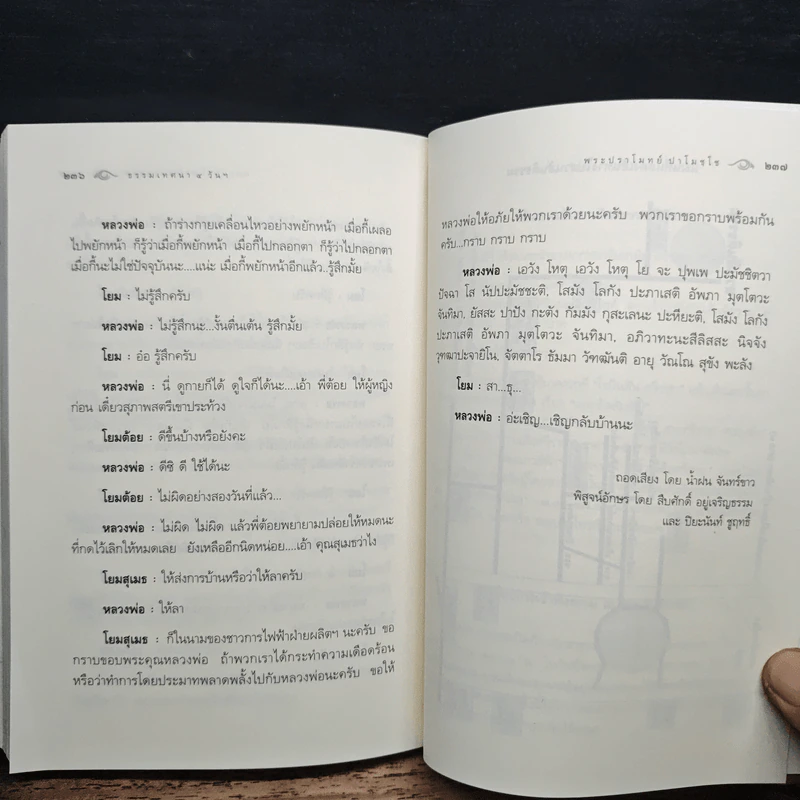 ๒๓๖ ธรรมเทศนา ๔ วันฯ
หลวงพ่อ : ถ้าร่างกายเคลื่อนไหวอย่างพยักหน้า เมื่อกี้เผลอ
ไปพยักหน้า ก็รู้ว่าเมื่อกี้พยักหน้า เมื่อกี้ไปกลอกตา ก็รู้ว่าไปกลอกตา
เมื่อกี้นะไม่ใช่ปัจจุบันนะ....แน่ะ เมื่อกี้พยักหน้าอีกแล้ว..รู้สึกมั้ย
โยม : ไม่รู้สึกครับ
หลวงพ่อ : ไม่รู้สึกนะ...งั้นตื่นเต้น รู้สึกมั้ย
โยม : อ๋อ รู้สึกครับ
หลวงพ่อ : นี่ ดูกายก็ได้ ดูใจก็ได้นะ....เอ้า พี่ต้อย ให้ผู้หญิง
ก่อน เดี๋ยวสุภาพสตรีเขาประท้วง
โยมต้อย : ดีขึ้นบ้างหรือยังคะ
หลวงพ่อ : ดีซิ ดี ใช้ได้นะ
โยมต้อย : ไม่ผิดอย่างสองวันที่แล้ว...
หลวงพ่อ : ไม่ผิด ไม่ผิด แล้วพี่ต้อยพยายามปล่อยให้หมดนะ
ที่กดไว้เลิกให้หมดเลย ยังเหลืออีกนิดหน่อย....เอ้า คุณสุเมธว่าไง
โยมสุเมธ : ให้ส่งการบ้านหรือว่าให้ลาครับ
หลวงพ่อ : ให้ลา
โยมสุเมธ : ก็ในนามของชาวการไฟฟ้าฝ่ายผลิตฯ นะครับ ขอ
กราบขอบพระคุณหลวงพ่อ ถ้าพวกเราได้กระทำความเดือดร้อน
หรือว่าทำการโดยประมาทพลาดพลั้งไปกับหลวงพ่อนะครับ ขอให้
พระปราโมทย์ ปาโมชฺโช ๒๓๗
หลวงพ่อให้อภัยให้พวกเราด้วยนะครับ พวกเราขอกราบพร้อมกัน
ครับ...กราบ กราบ กราบ
หลวงพ่อ : เอวัง โหตุ เอวัง โหตุ โย จะ ปุพเพ ปะมัชชิตวา
ปัจฉา โส นัปปะมัชชะติ, โสมัง โลกัง ปะภาเสติ อัพภา มุตโตวะ
จันทิมา, ยัสสะ ปาปัง กะตัง กัมมัง กุสะเลนะ ปะหียะติ, โสมัง โลกัง
ปะภาเสติ อัพภา มุตโตวะ จันทิมา. อภิวาทะนะสีลิสสะ นิจจัง
วุฑฒาปะจายิโน, จัตตาโร ธัมมา วัฑฒันติ อายุ วัณโณ สุขัง พะลัง
โยม : สา...ธุ...
หลวงพ่อ : อ่ะเชิญ...เชิญกลับบ้านนะ
ถอดเสียง โดย น้ำฝน จันทร์ขาว
พิสูจน์อักษร โดย สืบศักดิ์ อยู่เจริญธรรม
และ ปิยะนันท์ ชูฤทธิ์